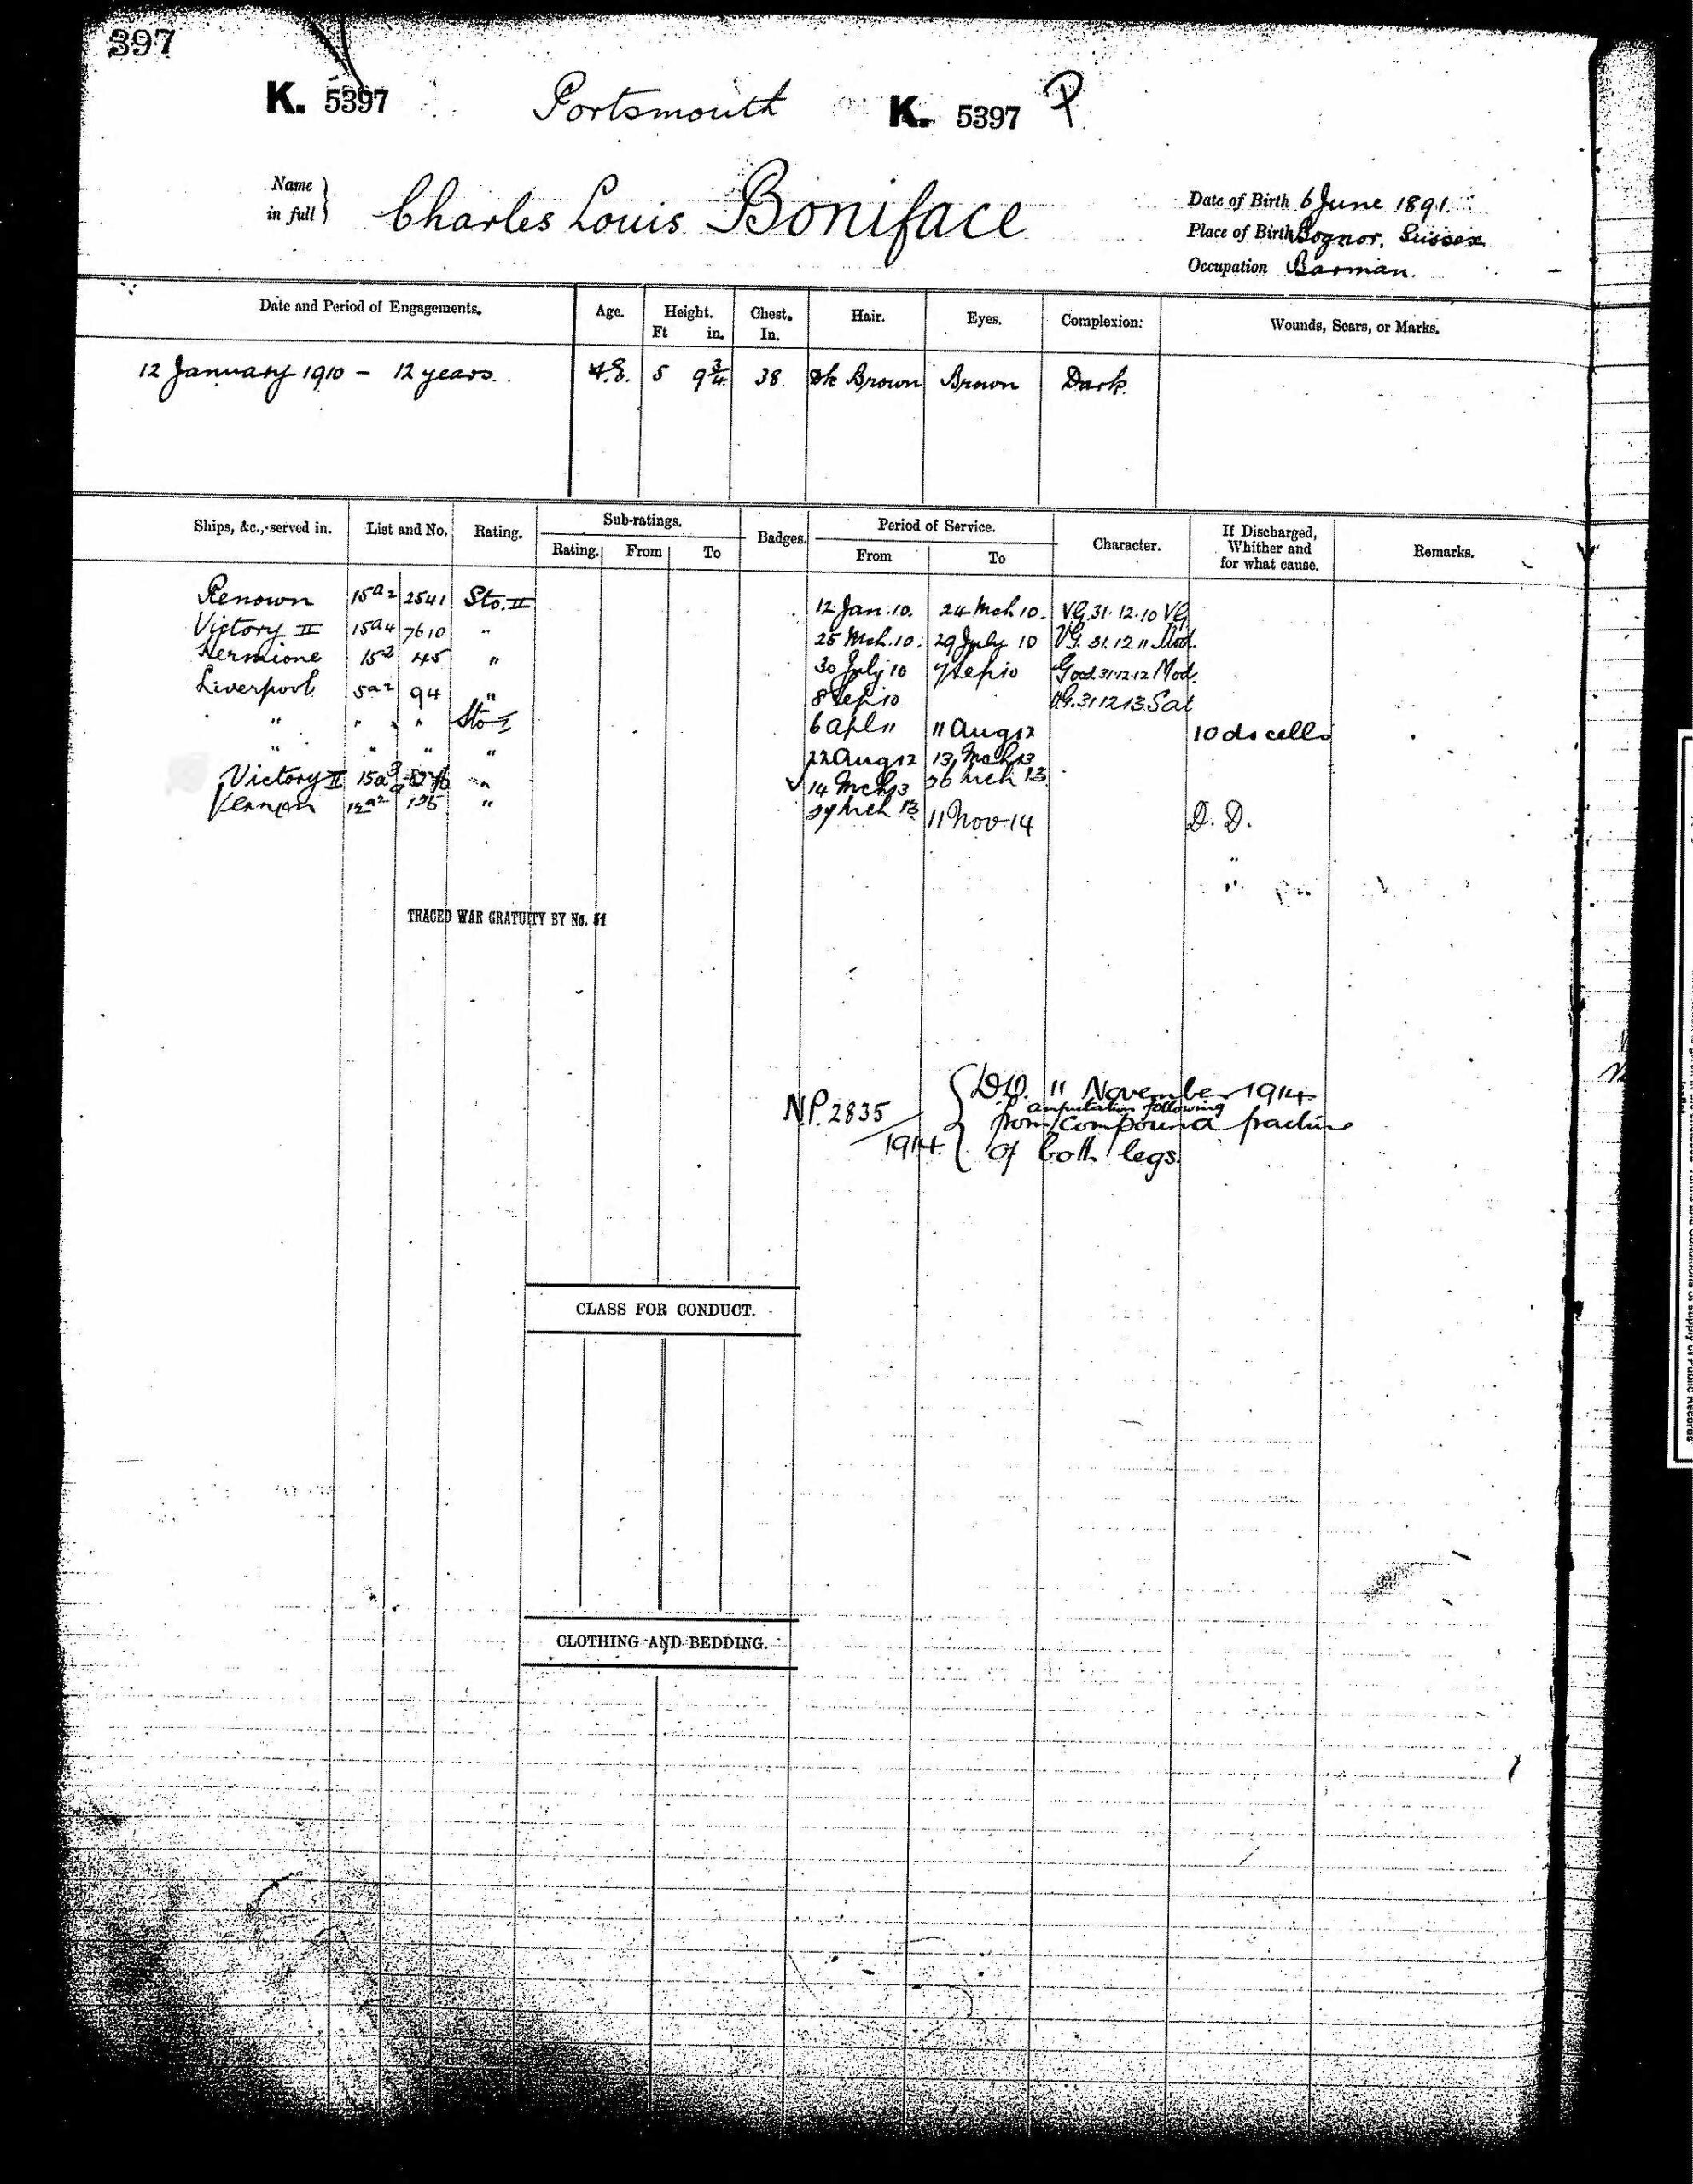 397
K. 5397 Portsmouth K. 5397 P
Name in full Charles Louis Boniface
Date of Birth 6 June 1891.
Place of Birth Bognor, Sussex
Occupation Barman.
Date and Period of Engagements. Age. Height. Ft in. Chest. In. Hair. Eyes. Complexion. Wounds, Scars, or Marks.
12 January 1910 - 12 years. 5 9 3/4 38 Dk Brown Brown Dark.
Ships, &c., served in. List and No. Rating. Sub-ratings. Rating. From To Badges. Period of Service. From To Character. If Discharged, Whither and for what cause. Remarks.
Renown 15a2 2541 Sto. II 12 Jan. 10. 24 Mch 10. VG. 31.12.10 VG
Victory II 15a4 7610 " 25 Mch. 10. 29 July 10 VG. 31.12.11 Mod.
Hermione 15a 45 " 30 July 10 7 Sep 10 Good 31.12.12 Mod.
Liverpool 5a2 94 " 8 Sep 10 VG. 31 12 13 Sat
" " " Sto I 6 Apl 11 11 Aug 12 10 ds cells
" " " " 22 Aug 12 13 Mch 13
Victory II 15a3 " 14 Mch 13 26 Mch 13
Vernon " 27 Mch 13 11 Nov. 14 D. D.
TRACED WAR GRATUITY BY No. 51
N.P. 2835/1914. D.D. 11 November 1914
from amputation following compound fracture
of both legs.
CLASS FOR CONDUCT.
CLOTHING AND BEDDING.